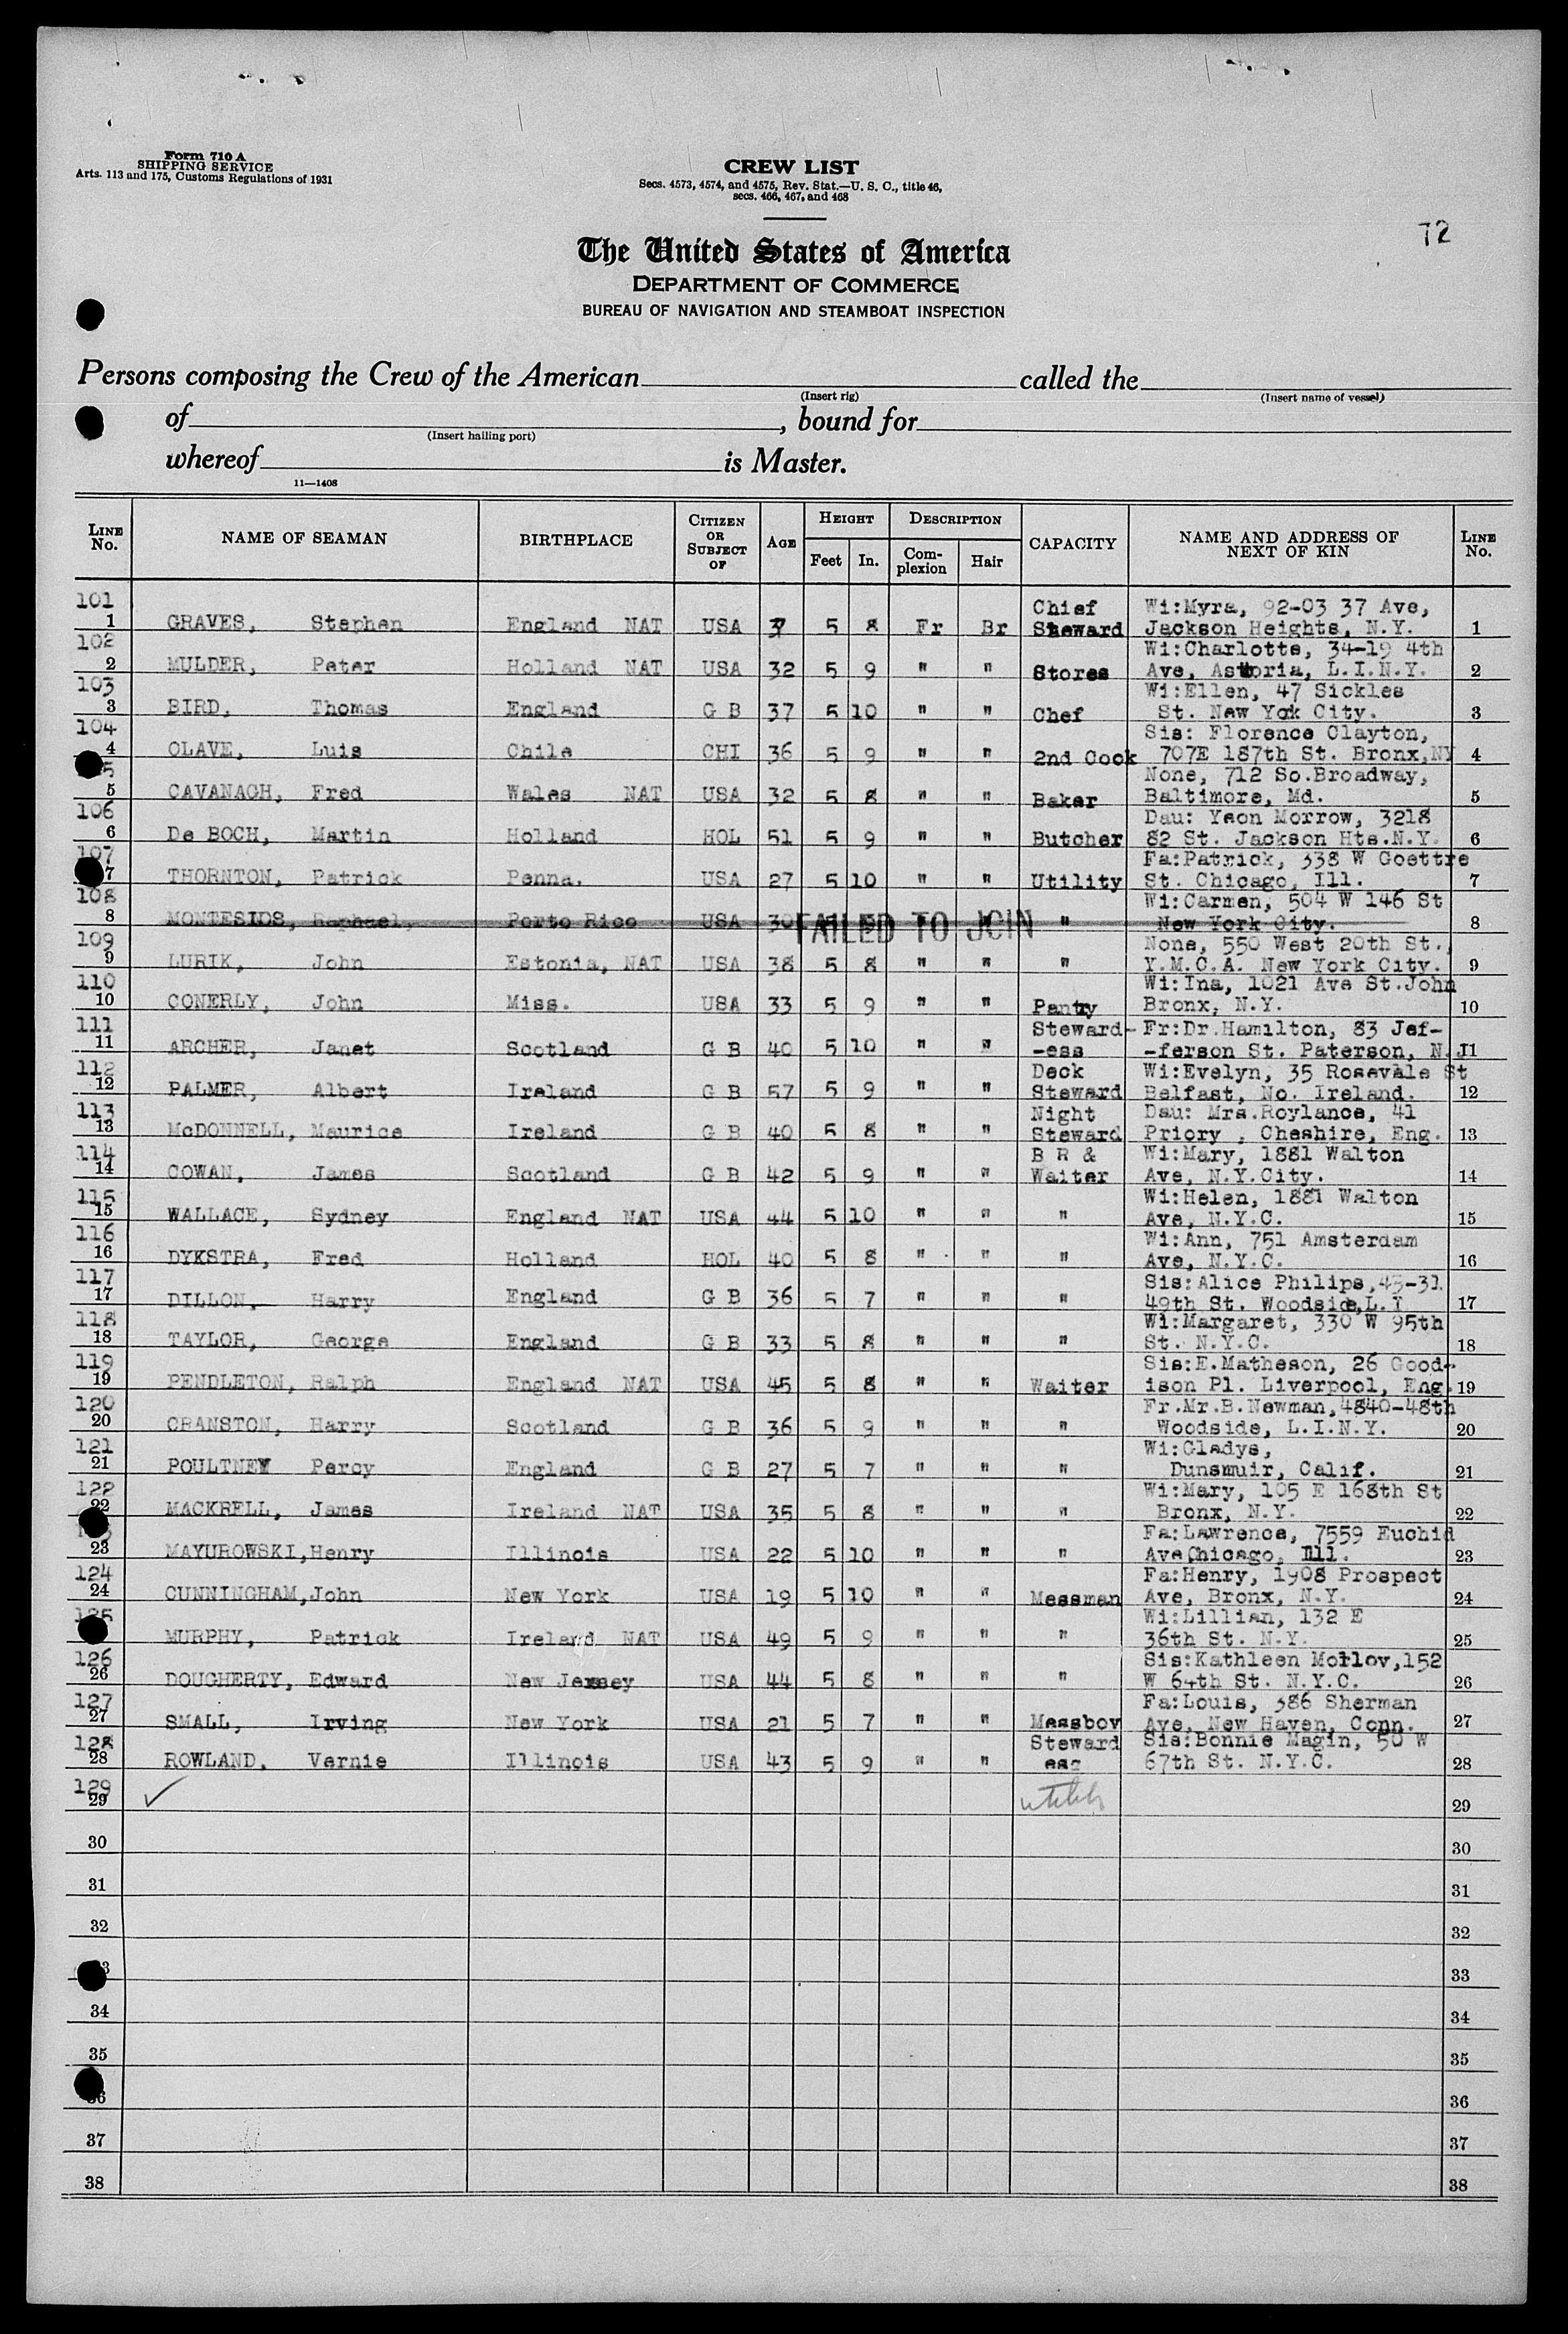 Form 710 A
SHIPPING SERVICE
Arts. 113 and 175, Customs Regulations of 1931
CREW LIST
Secs. 4573, 4574, and 4575, Rev. Stat.—U. S. C., title 46,
secs. 466, 467, and 468
72
The United States of America
DEPARTMENT OF COMMERCE
BUREAU OF NAVIGATION AND STEAMBOAT INSPECTION
Persons composing the Crew of the American called the
(Insert rig) (Insert name of vessel)
of , bound for
(Insert hailing port)
whereof is Master.
11—1408
LINE No. NAME OF SEAMAN BIRTHPLACE CITIZEN OR SUBJECT OF AGE HEIGHT Feet In. DESCRIPTION Complexion Hair CAPACITY NAME AND ADDRESS OF NEXT OF KIN LINE No.
101 Chief Wi:Myra, 92-03 37 Ave,
1 GRAVES, Stephen England NAT USA 37 5 8 Fr Br Steward Jackson Heights, N.Y. 1
102 Wi:Charlotte, 34-19 4th
2 MULDER, Peter Holland NAT USA 32 5 9 " " Stores Ave, Astoria, L.I.N.Y. 2
103 Wi:Ellen, 47 Sickles
3 BIRD, Thomas England G B 37 5 10 " " Chef St. New York City. 3
104 Sis: Florence Clayton,
4 OLAVE, Luis Chile CHI 36 5 9 " " 2nd Cook 707E 187th St. Bronx,NY 4
5 None, 712 So.Broadway,
5 CAVANAGH, Fred Wales NAT USA 32 5 8 " " Baker Baltimore, Md. 5
106 Dau: Yeon Morrow, 3218
6 De BOCH, Martin Holland HOL 51 5 9 " " Butcher 82 St. Jackson Hts.N.Y. 6
107 Fa:Patrick, 338 W Goettre
7 THORNTON, Patrick Penna. USA 27 5 10 " " Utility St. Chicago, Ill. 7
108 Wi:Carmen, 504 W 146 St
8 MONTESIDS, Raphael, Porto Rico USA 30 FAILED TO JOIN " New York City. 8
109 None, 550 West 20th St.,
9 LURIK, John Estonia, NAT USA 38 5 8 " " " Y.M.C.A. New York City. 9
110 Wi:Ina, 1021 Ave St.John
10 CONERLY, John Miss. USA 33 5 9 " " Pantry Bronx, N.Y. 10
111 Steward- Fr:Dr.Hamilton, 83 Jef-
11 ARCHER, Janet Scotland G B 40 5 10 " " -ess -ferson St. Paterson, N.J 11
112 Deck Wi:Evelyn, 35 Rosevale St
12 PALMER, Albert Ireland G B 57 5 9 " " Steward Belfast, No. Ireland. 12
113 Night Dau: Mrs.Roylance, 41
13 McDONNELL, Maurice Ireland G B 40 5 8 " " Steward Priory , Cheshire, Eng. 13
114 B R & Wi:Mary, 1881 Walton
14 COWAN, James Scotland G B 42 5 9 " " Waiter Ave, N.Y.City. 14
115 Wi:Helen, 1881 Walton
15 WALLACE, Sydney England NAT USA 44 5 10 " " " Ave, N.Y.C. 15
116 Wi:Ann, 751 Amsterdam
16 DYKSTRA, Fred Holland HOL 40 5 8 " " " Ave, N.Y.C. 16
117 Sis:Alice Philips,45-31
17 DILLON, Harry England G B 36 5 7 " " " 49th St. Woodside,L.Y 17
118 Wi:Margaret, 330 W 95th
18 TAYLOR, George England G B 33 5 8 " " " St. N.Y.C. 18
119 Sis:E.Matheson, 26 Good-
19 PENDLETON, Ralph England NAT USA 45 5 8 " " Waiter ison Pl. Liverpool, Eng. 19
120 Fr.Mr.B.Newman,4840-48th
20 CRANSTON, Harry Scotland G B 36 5 9 " " " Woodside, L.I.N.Y. 20
121 Wi:Gladys,
21 POULTNEY Percy England G B 27 5 7 " " " Dunsmuir, Calif. 21
122 Wi:Mary, 105 E 168th St
22 MACKRELL, James Ireland NAT USA 35 5 8 " " " Bronx, N.Y. 22
Fa:Lawrence, 7559 Euchid
23 MAYUROWSKI,Henry Illinois USA 22 5 10 " " " Ave Chicago, Ill. 23
124 Fa:Henry, 1908 Prospect
24 CUNNINGHAM,John New York USA 19 5 10 " " Messman Ave, Bronx, N.Y. 24
125 Wi:Lillian, 132 E
MURPHY, Patrick Ireland NAT USA 49 5 9 " " " 36th St. N.Y. 25
126 Sis:Kathleen Mollov,152
26 DOUGHERTY, Edward New Jersey USA 44 5 8 " " " W 64th St. N.Y.C. 26
127 Fa:Louis, 386 Sherman
27 SMALL, Irving New York USA 21 5 7 " " Messboy Ave, New Haven, Conn. 27
128 Steward Sis:Bonnie Magin, 50 W
28 ROWLAND, Vernie Illinois USA 43 5 9 " " ess 67th St. N.Y.C. 28
129
29 ✓ 29
30 30
31 31
32 32
3 33
34 34
35 35
36 36
37 37
38 38